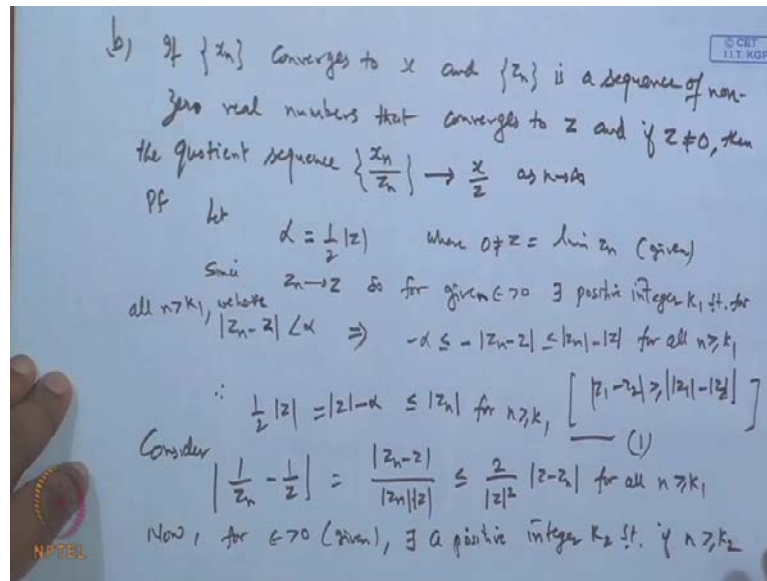 © CET
I.I.T. KGP
b) If {xn} converges to x and {zn} is a sequence of non-
zero real numbers that converges to z and if z≠0, then
the quotient sequence {xn/zn} → x/z as n→∞
Pf Let
α = 1/2 |z| where 0≠z = lim zn (given)
Since zn→z so for given ε>0 ∃ positive integer K1 st. for
all n>K1, we have
|zn-z| < α ⇒ -α ≤ -|zn-z| ≤ |zn|-|z| for all n≥K1
∴ 1/2 |z| = |z|-α ≤ |zn| for n≥K1 [|z1-z2| ≥ ||z1|-|z2||]
(1)
Consider
|1/zn - 1/z| = |zn-z|/|zn||z| ≤ 2/|z|² |z-zn| for all n≥K1
Now, for ε>0 (given), ∃ a positive integer K2 st. if n≥K2
NPTEL